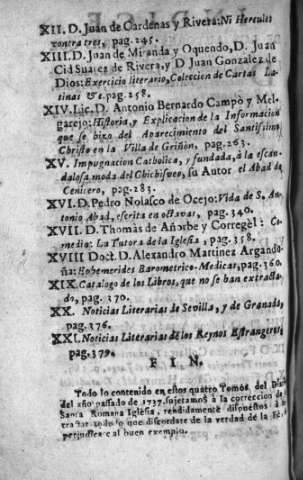 XII. D. Juan de Cardenas y Rivera: Ni Hercules
contra tres, pag. 245.
XIII. D. Juan de Miranda y Oquendo, D. Juan
Cid Suarez de Rivera, y D Juan Gonzalez de
Dios: Exercicio literario, Coleccion de Cartas La-
tinas &c. pag. 258.
XIV. Lic. D. Antonio Bernardo Campo y Mel-
garejo: Historia, y Explicacion de la Informacion
que se hizo del Aparecimiento del Santissimo
Christo en la Villa de Griñon, pag. 263.
XV. Impugnacion Catholica, y fundada, à la escan-
dalosa moda del Chichisveo, su Autor el Abad de
Cenicero, pag. 283.
XVI. D. Pedro Nolasco de Ocejo: Vida de S. An-
tonio Abad, escrita en octavas, pag. 340.
XVII. D. Thomas de Añorbe y Corregèl: Co-
media: La Tutora de la Iglesia, pag. 358.
XVIII Doct. D. Alexandro Martinez Argando-
ña: Ephemerides Barometrico-Medicas, pag. 360.
XIX. Catalogo de los Libros, que no se han extracta-
do, pag. 370.
XX. Noticias Literarias de Sevilla, y de Granada,
pag. 376.
XXI. Noticias Literarias de los Reynos Estrangeros,
pag. 379.
F I N.
Todo lo contenido en estos quatro Tomos del
del año passado de 1737. sujetamos à la correccion de
Santa Romana Iglesia, rendidamente dispuestos à
tractar todo lo que discordare de la verdad de la Fè,
perjudicare al buen exemplo.